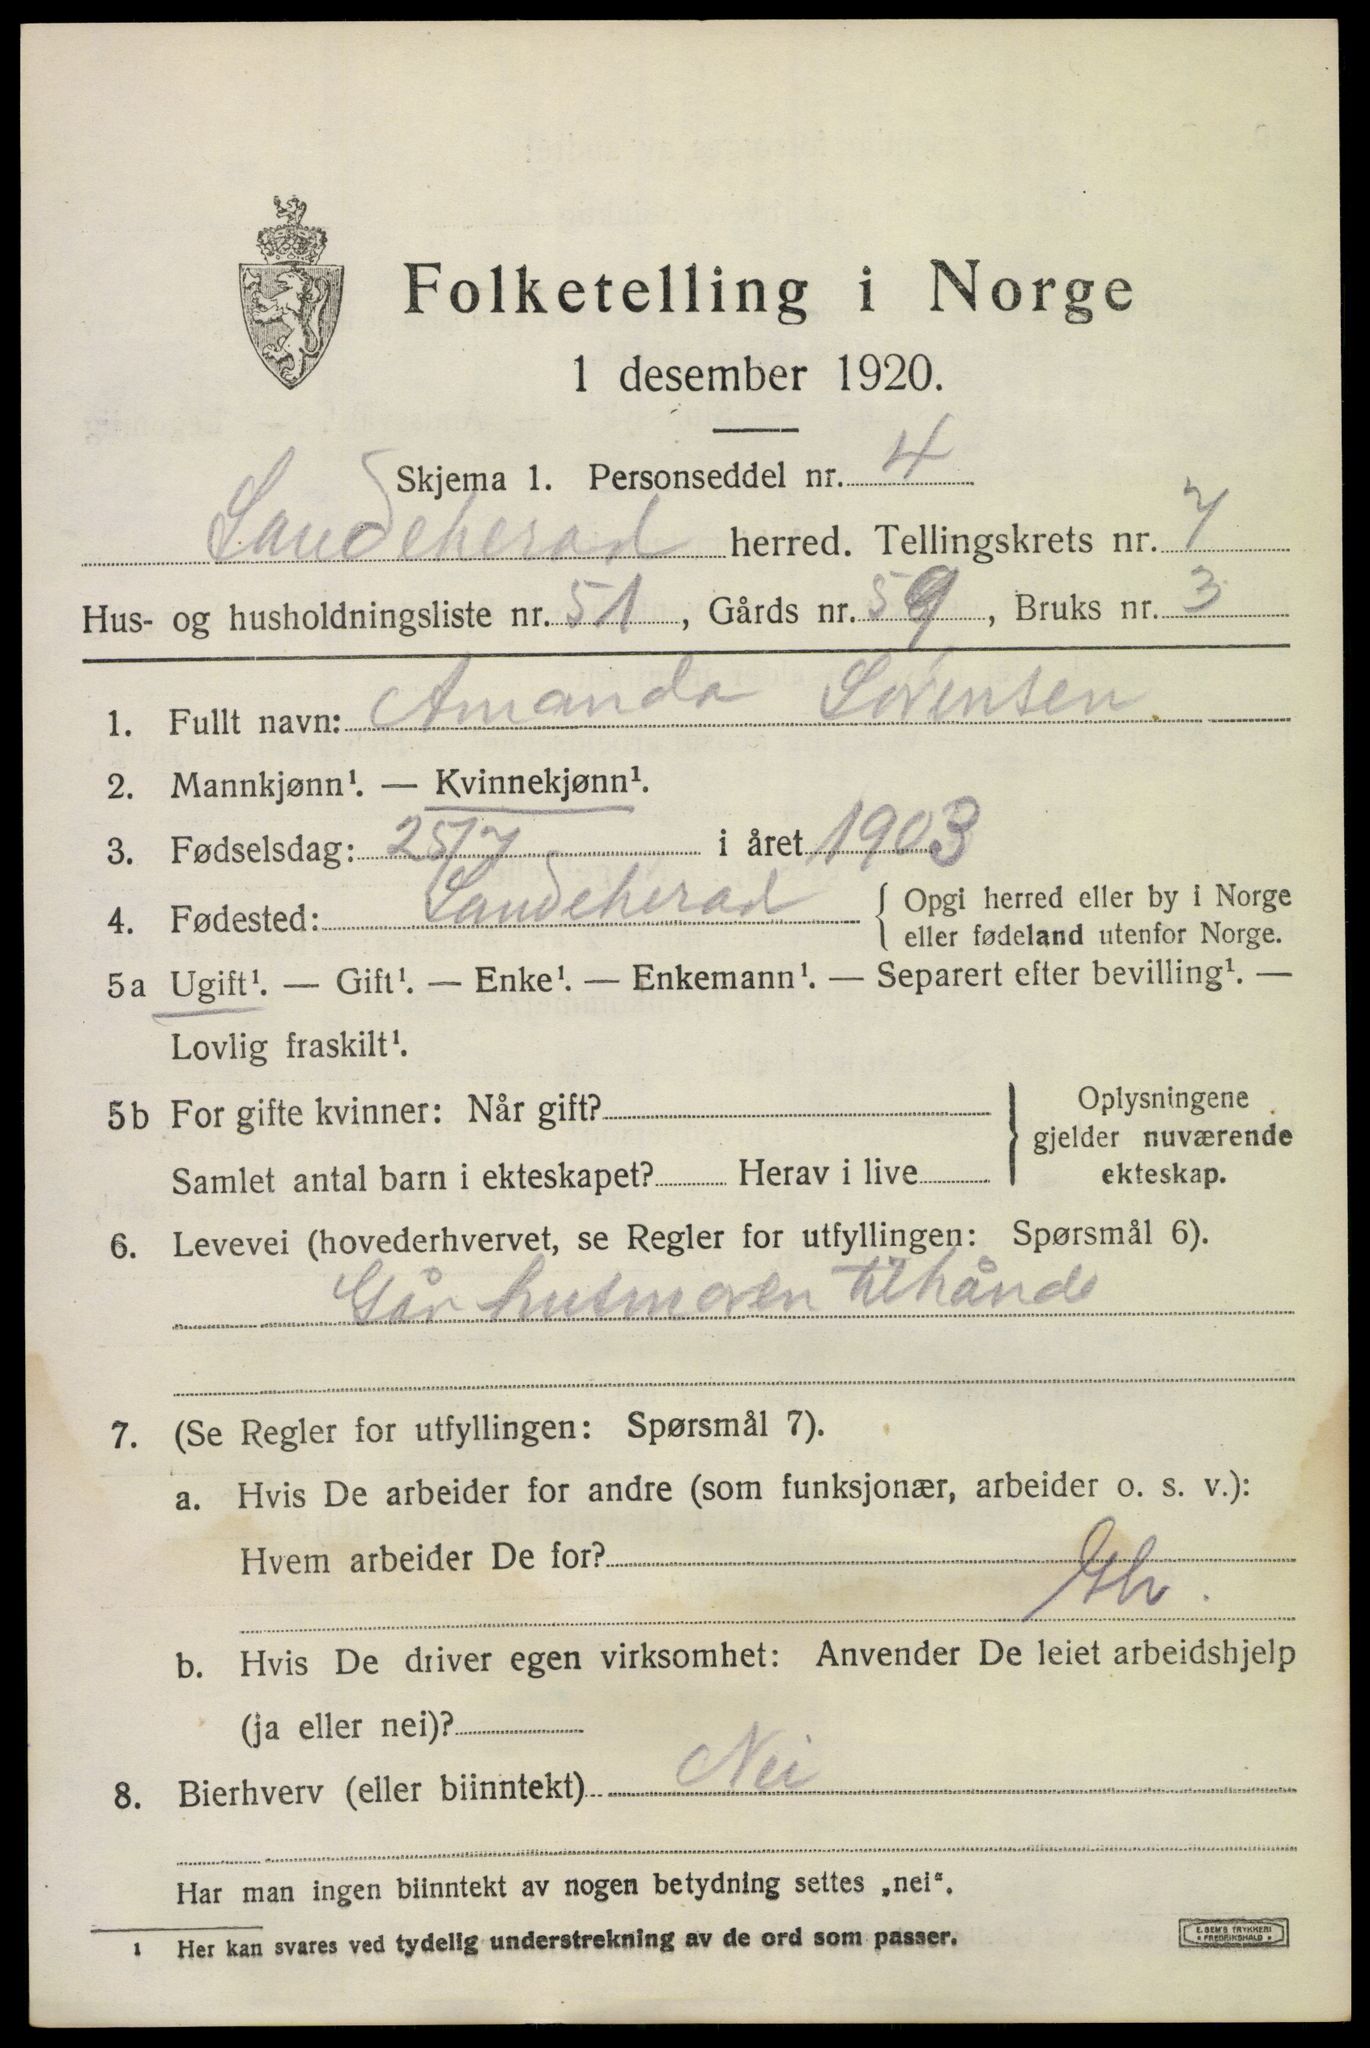 Folketelling i Norge
1 desember 1920.
Skjema 1. Personseddel nr. 4
Sandeherad herred. Tellingskrets nr. 7
Hus- og husholdningsliste nr. 51, Gårds nr. 59, Bruks nr. 3
1. Fullt navn: Amanda Sørensen
2. Mannkjønn¹. — Kvinnekjønn¹.
3. Fødselsdag: 25/7 i året 1903
4. Fødested: Sandeherad { Opgi herred eller by i Norge
eller fødeland utenfor Norge.
5a Ugift¹. — Gift¹. — Enke¹. — Enkemann¹. — Separert efter bevilling¹. —
Lovlig fraskilt¹.
5b For gifte kvinner: Når gift? } Oplysningene
gjelder nuværende
Samlet antal barn i ekteskapet? Herav i live
ekteskap.
6. Levevei (hovederhvervet, se Regler for utfyllingen: Spørsmål 6).
Går husmoren tilhånde
7. (Se Regler for utfyllingen: Spørsmål 7).
a. Hvis De arbeider for andre (som funksjonær, arbeider o. s. v.):
Hvem arbeider De for?
b. Hvis De driver egen virksomhet: Anvender De leiet arbeidshjelp
(ja eller nei)?
8. Bierhverv (eller biinntekt) Nei
Har man ingen biinntekt av nogen betydning settes „nei“.
1 Her kan svares ved tydelig understrekning av de ord som passer.
E. SEM'S TRYKKERI
* FREDRIKSHALD *